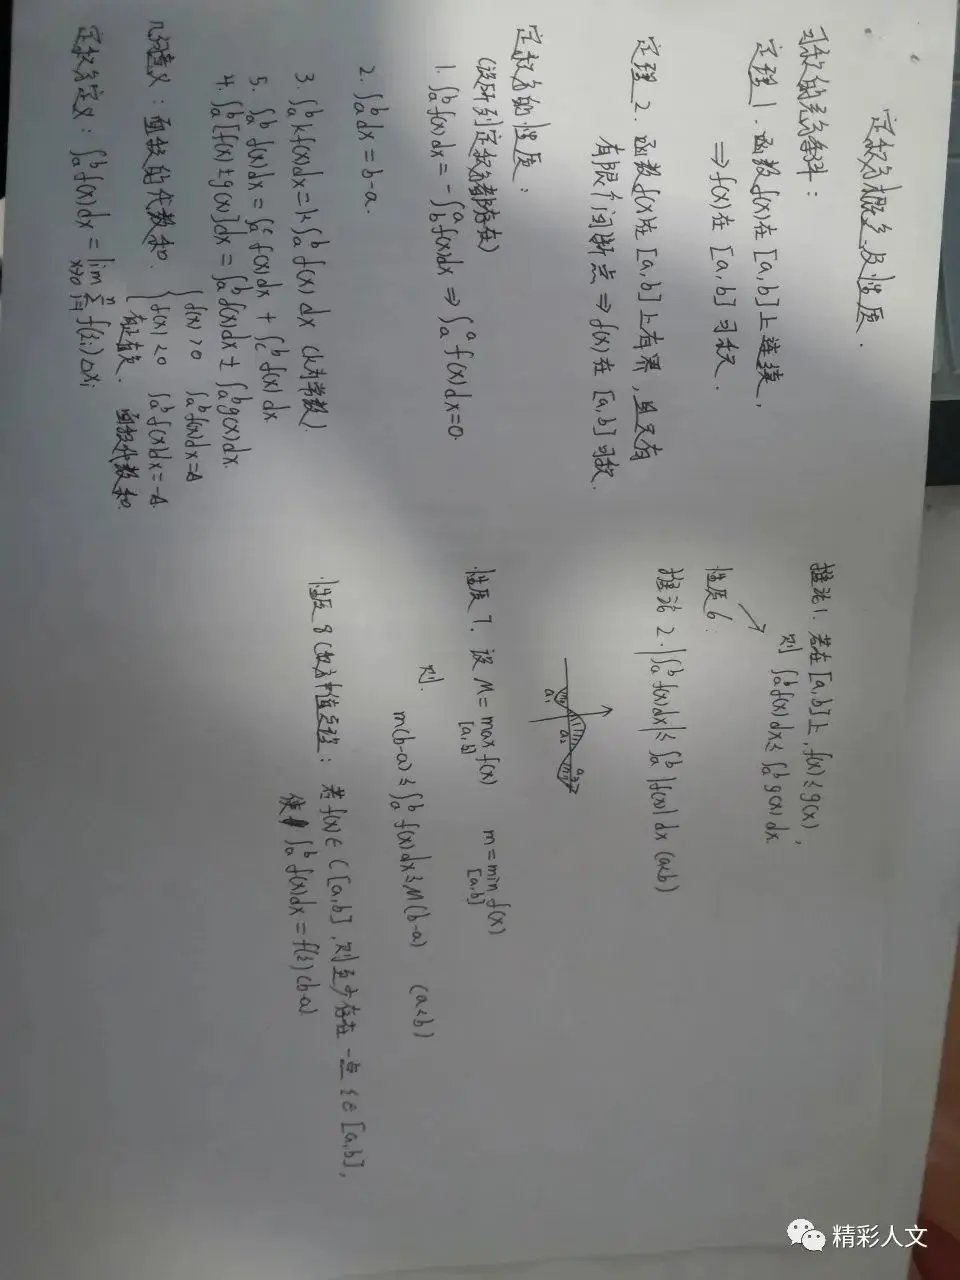 定积分概念及性质.
可积的充分条件:
定理1. 函数f(x)在[a,b]上连续,
⇒f(x)在[a,b]可积.
定理2. 函数f(x)在[a,b]上有界,且只有
有限个间断点⇒f(x)在[a,b]可积.
定积分的性质:
(设所列定积分都存在)
1. ∫_a^b f(x)dx = -∫_b^a f(x)dx ⇒ ∫_a^a f(x)dx=0.
2. ∫_a^b dx = b-a.
3. ∫_a^b kf(x)dx = k∫_a^b f(x)dx (k为常数).
5. ∫_a^b f(x)dx = ∫_a^c f(x)dx + ∫_c^b f(x)dx.
4. ∫_a^b [f(x)±g(x)]dx = ∫_a^b f(x)dx ± ∫_a^b g(x)dx.
几何意义: 面积的代数和.
{ f(x)>0 ∫_a^b f(x)dx=A
f(x)<0 ∫_a^b f(x)dx=-A
有正有负. 面积代数和.
定积分定义: ∫_a^b f(x)dx = lim_{λ→0} Σ_{i=1}^n f(ξi)△xi
推论1. 若在[a,b]上, f(x)≤g(x),
则∫_a^b f(x)dx≤∫_a^b g(x)dx
性质6.
推论2. |∫_a^b f(x)dx|≤∫_a^b |f(x)|dx (a<b)
a1 a2 a3
性质7. 设M=max_{[a,b]} f(x) m=min_{[a,b]} f(x)
则.
m(b-a)≤∫_a^b f(x)dx≤M(b-a) (a<b)
性质8(积分中值定理: 若f(x)∈C[a,b],则至少存在一点ξ∈[a,b],
使∫_a^b f(x)dx=f(ξ)(b-a)
精彩人文